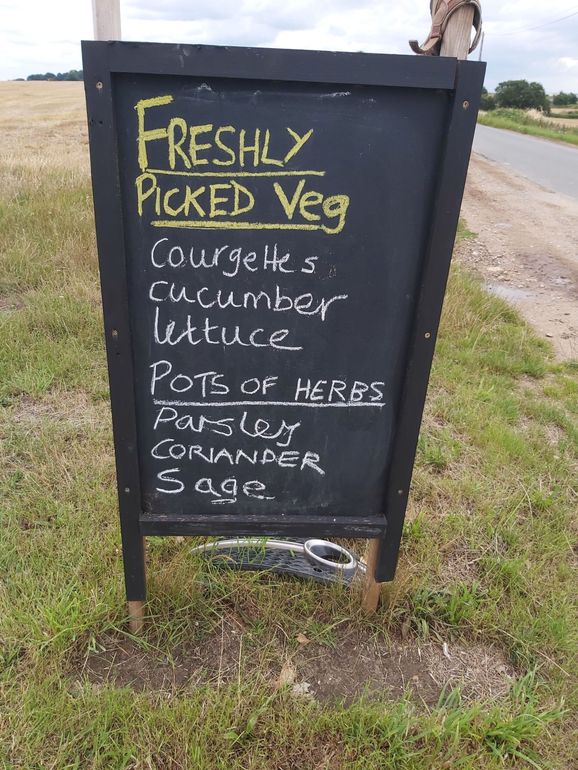 FRESHLY
PICKED Veg
Courgettes
cucumber
lettuce
POTS OF HERBS
Parsley
CORIANDER
Sage